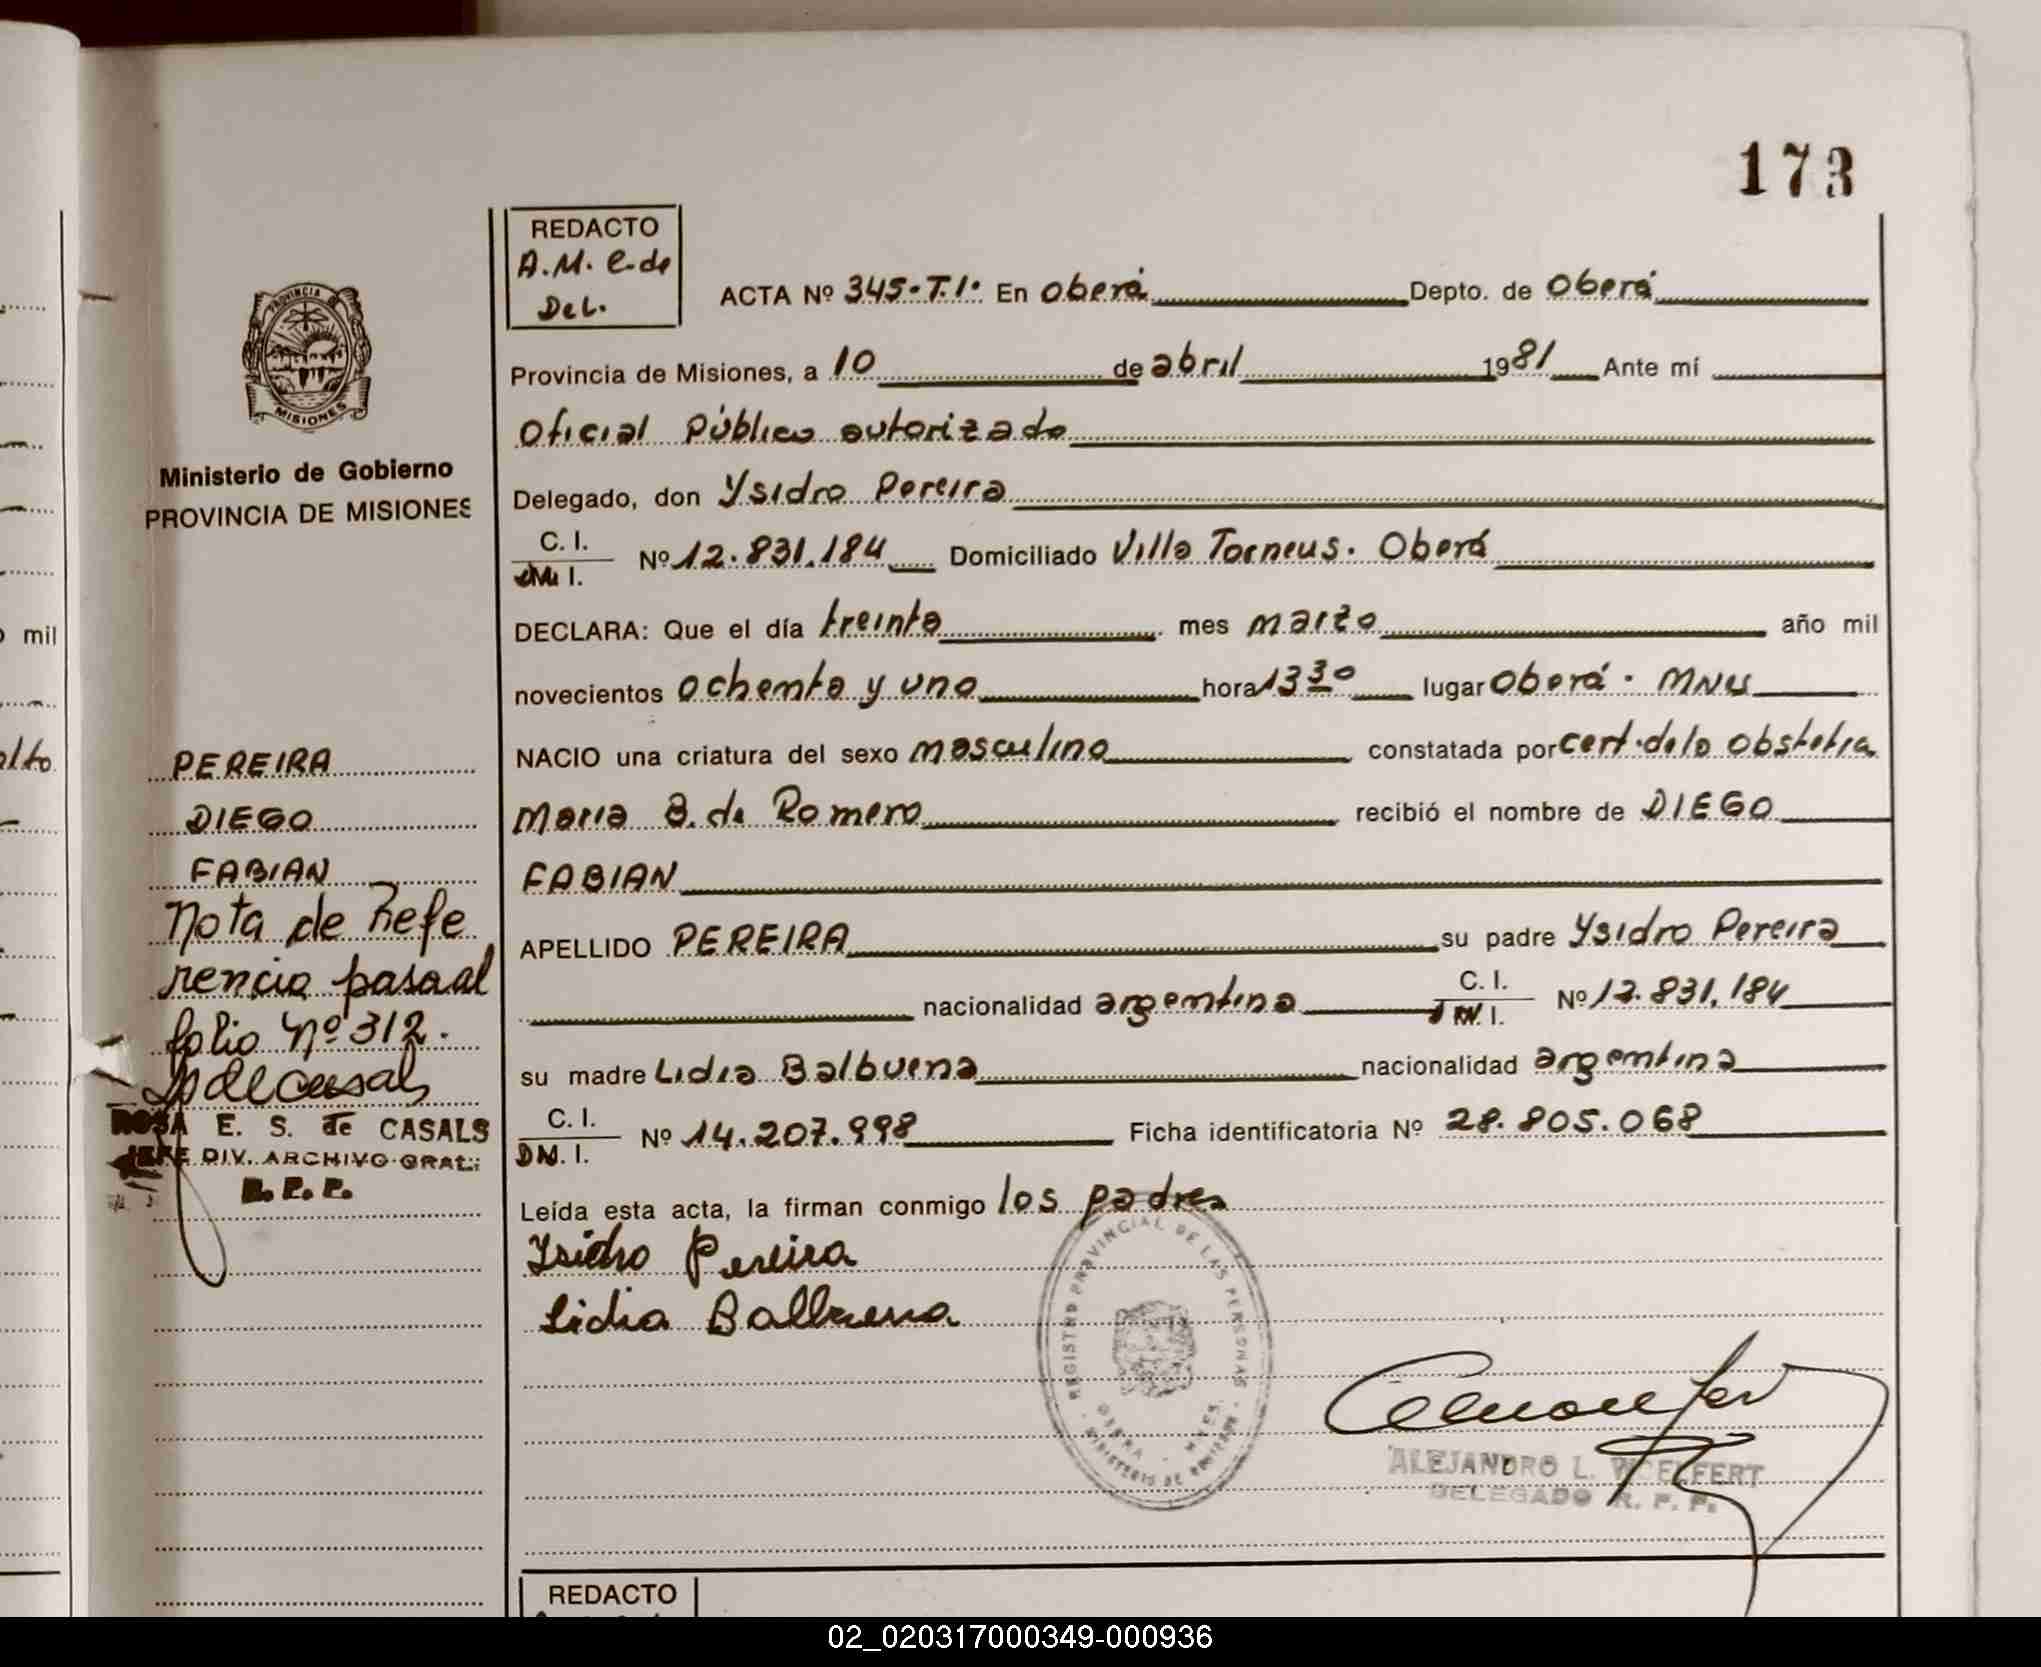 173
REDACTO
A.M. C. de
Del.
ACTA Nº 345-T.I. En Oberá Depto. de Oberá
Provincia de Misiones, a 10 de abril 1981 Ante mí
Oficial Público autorizado
Delegado, don Ysidro Pereira
C. I.
Nº 12.831.184 Domiciliado Villa Torneus. Oberá
DECLARA: Que el día treinta mes marzo año mil
novecientos ochenta y uno hora 13 30 lugar Oberá. MNES
NACIO una criatura del sexo masculino constatada por cert. de la obstetra
Maria B. de Romero recibió el nombre de DIEGO
FABIAN
APELLIDO PEREIRA su padre Ysidro Pereira
nacionalidad argentina C. I. Nº 12.831.184
su madre Lidia Balbuena nacionalidad argentina
C. I.
Nº 14.207.998 Ficha identificatoria Nº 28.805.068
D.N. I.
Leída esta acta, la firman conmigo los padres
Isidro Pereira
Lidia Balbuena
REGISTRO PROVINCIAL DE LAS PERSONAS
OBERA - MNES.
MINISTERIO DE GOBIERNO
ALEJANDRO L. WOELFERT
DELEGADO R. P. P.
REDACTO
PROVINCIA
MISIONES
Ministerio de Gobierno
PROVINCIA DE MISIONES
PEREIRA
DIEGO
FABIAN
Nota de Refe
rencia pasa al
folio Nº 312.
R de Casals
ROSA E. S. de CASALS
JEFE DIV. ARCHIVO GRAL.
R. P. P.
mil
alto
02_020317000349-000936